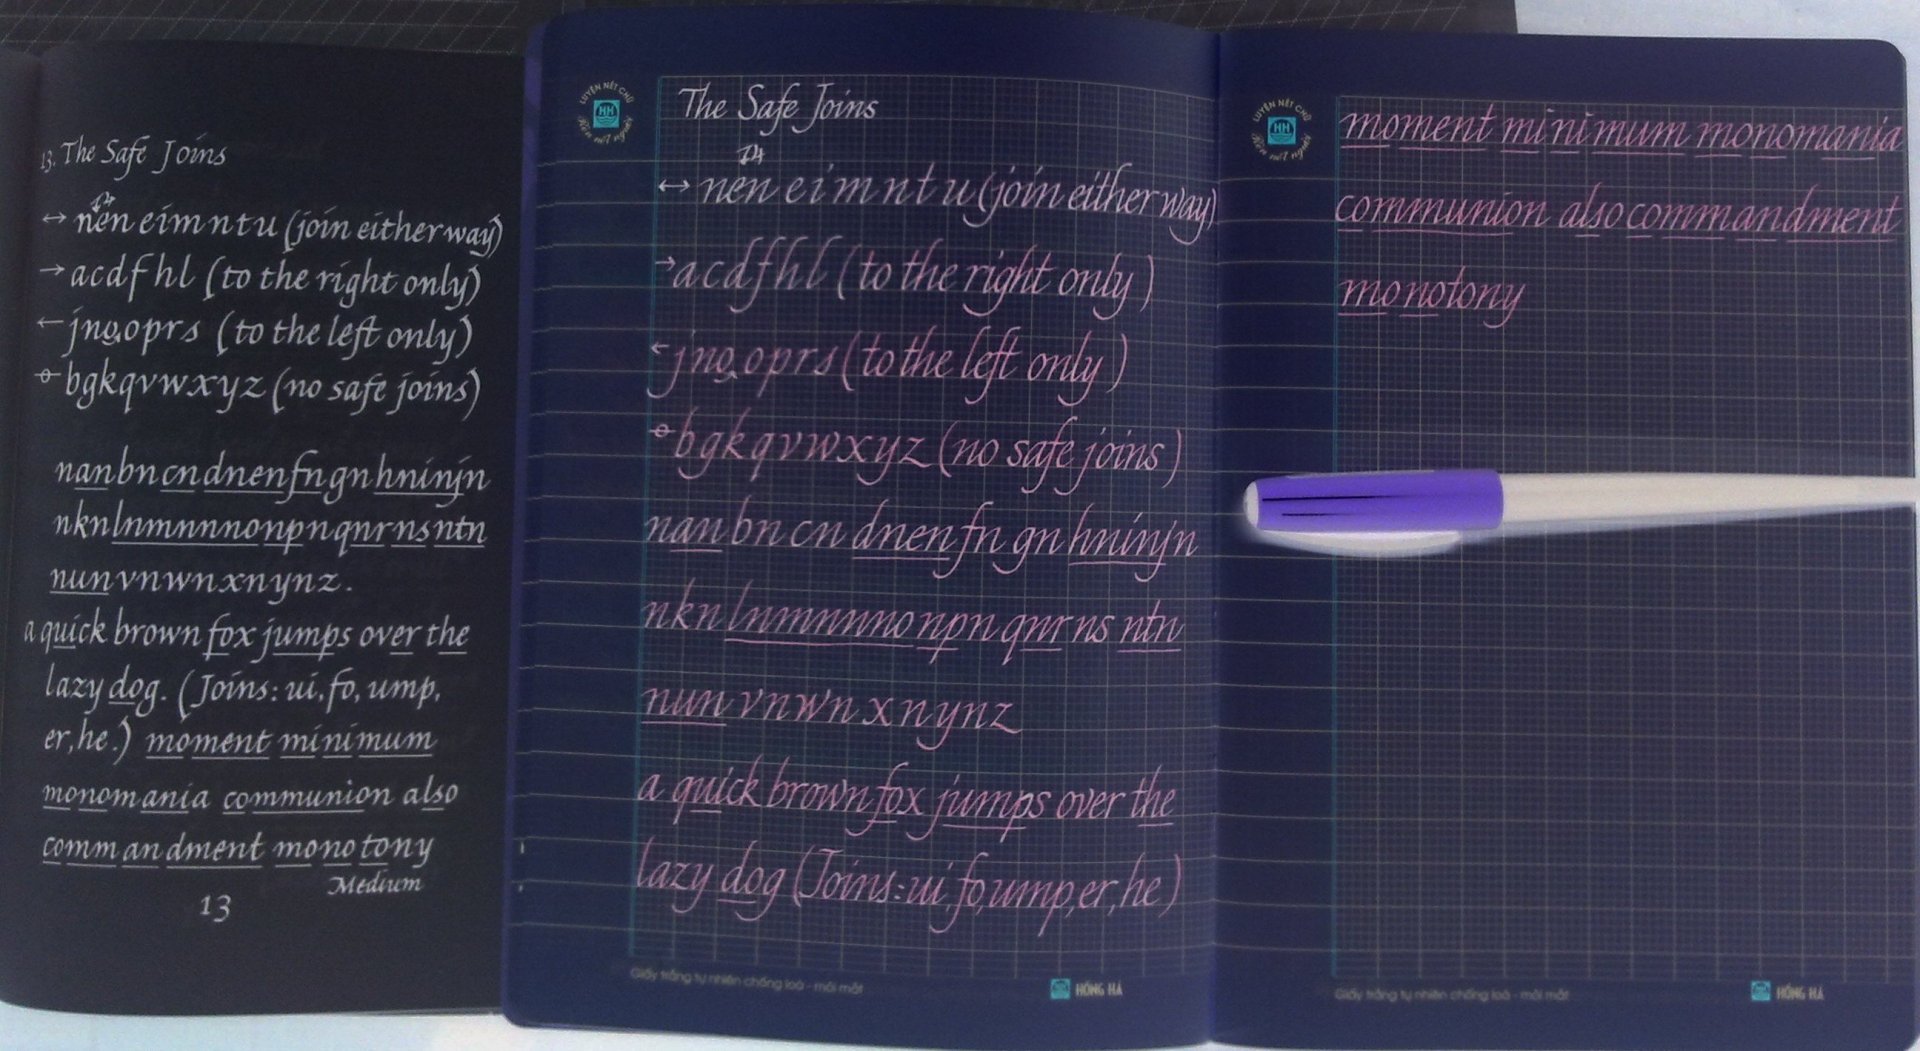 13. The Safe Joins
↔ nen e i m n t u (join either way)
→ a c d f h l (to the right only)
← j no o p r s (to the left only)
b g k q v w x y z (no safe joins)
nanbncndnenfngnhninjn
nknlnmnnnonpnqnrnsntn
nunvnwnxnynz.
a quick brown fox jumps over the
lazy dog. (Joins: ui, fo, ump,
er, he.) moment minimum
monomania communion also
commandment monotony
Medium
13
LUYỆN NÉT CHỮ
HH
Rèn nết người
The Safe Joins
↔ nen e i m n t u (join either way)
→ a c d f h l (to the right only)
← j no o p r s (to the left only)
b g k q v w x y z (no safe joins)
nanbn cn dnenfn gn hninjn
nkn lnmnnnonpn qnr ns ntn
nun vnwn xnynz
a quick brown fox jumps over the
lazy dog (Joins: ui, fo, ump, er, he)
Giấy trắng tự nhiên chống loá - mỏi mắt
HH HỒNG HÀ
LUYỆN NÉT CHỮ
HH
Rèn nết người
moment minimum monomania
communion also commandment
monotony
Giấy trắng tự nhiên chống loá - mỏi mắt
HH HỒNG HÀ